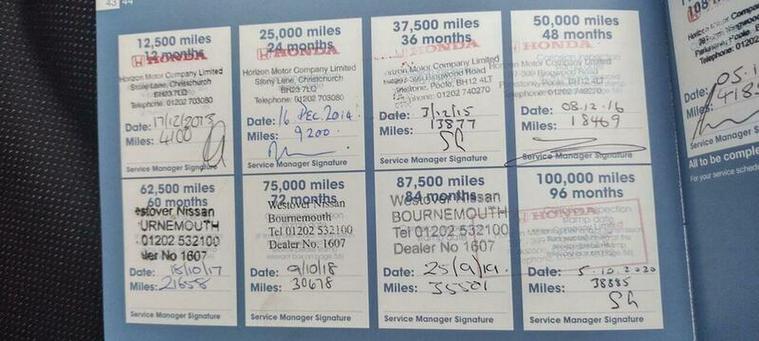 43 44
12,500 miles
12 months
HONDA
Horizon Motor Company Limited
Stony Lane, Christchurch
BH23 7LQ
Telephone: 01202 703080
Date: 17/12/2013
Miles: 4100
Service Manager Signature
25,000 miles
24 months
HONDA
Horizon Motor Company Limited
Stony Lane, Christchurch
BH23 7LQ
Telephone: 01202 703080
Date: 16 DEC 2014
Miles: 9200
Service Manager Signature
37,500 miles
36 months
HONDA
Horizon Motor Company Limited
Ringwood Road
Parkstone, Poole, BH12 4LT
Telephone: 01202 740270
Date: 3/12/15
Miles: 13877
Service Manager Signature
50,000 miles
48 months
HONDA
Horizon Motor Company Limited
Ringwood Road
Parkstone, Poole, BH12 4LT
Telephone: 01202 740270
Date: 08.12.16
Miles: 18469
Service Manager Signature
62,500 miles
60 months
estover Nissan
URNEMOUTH
01202 532100
aler No 1607
Date: 18/10/17
Miles: 21658
Service Manager Signature
75,000 miles
72 months
Westover Nissan
Bournemouth
Tel 01202 532100
Dealer No. 1607
Date: 9/10/18
Miles: 30678
Service Manager Signature
87,500 miles
84 months
Westover Nissan
BOURNEMOUTH
Tel 01202 532100
Dealer No 1607
Date: 25/9/19.
Miles: 35501
Service Manager Signature
100,000 miles
96 months
HONDA
Date: 5.10.2020
Miles: 38885
Service Manager Signature
108
Horizon Motor Compa
Ringwood
Parkstone, Poole
Telephone: 01202
Date: 05.1
Miles: 418
Service Manager S
All to be comple
For your service sched